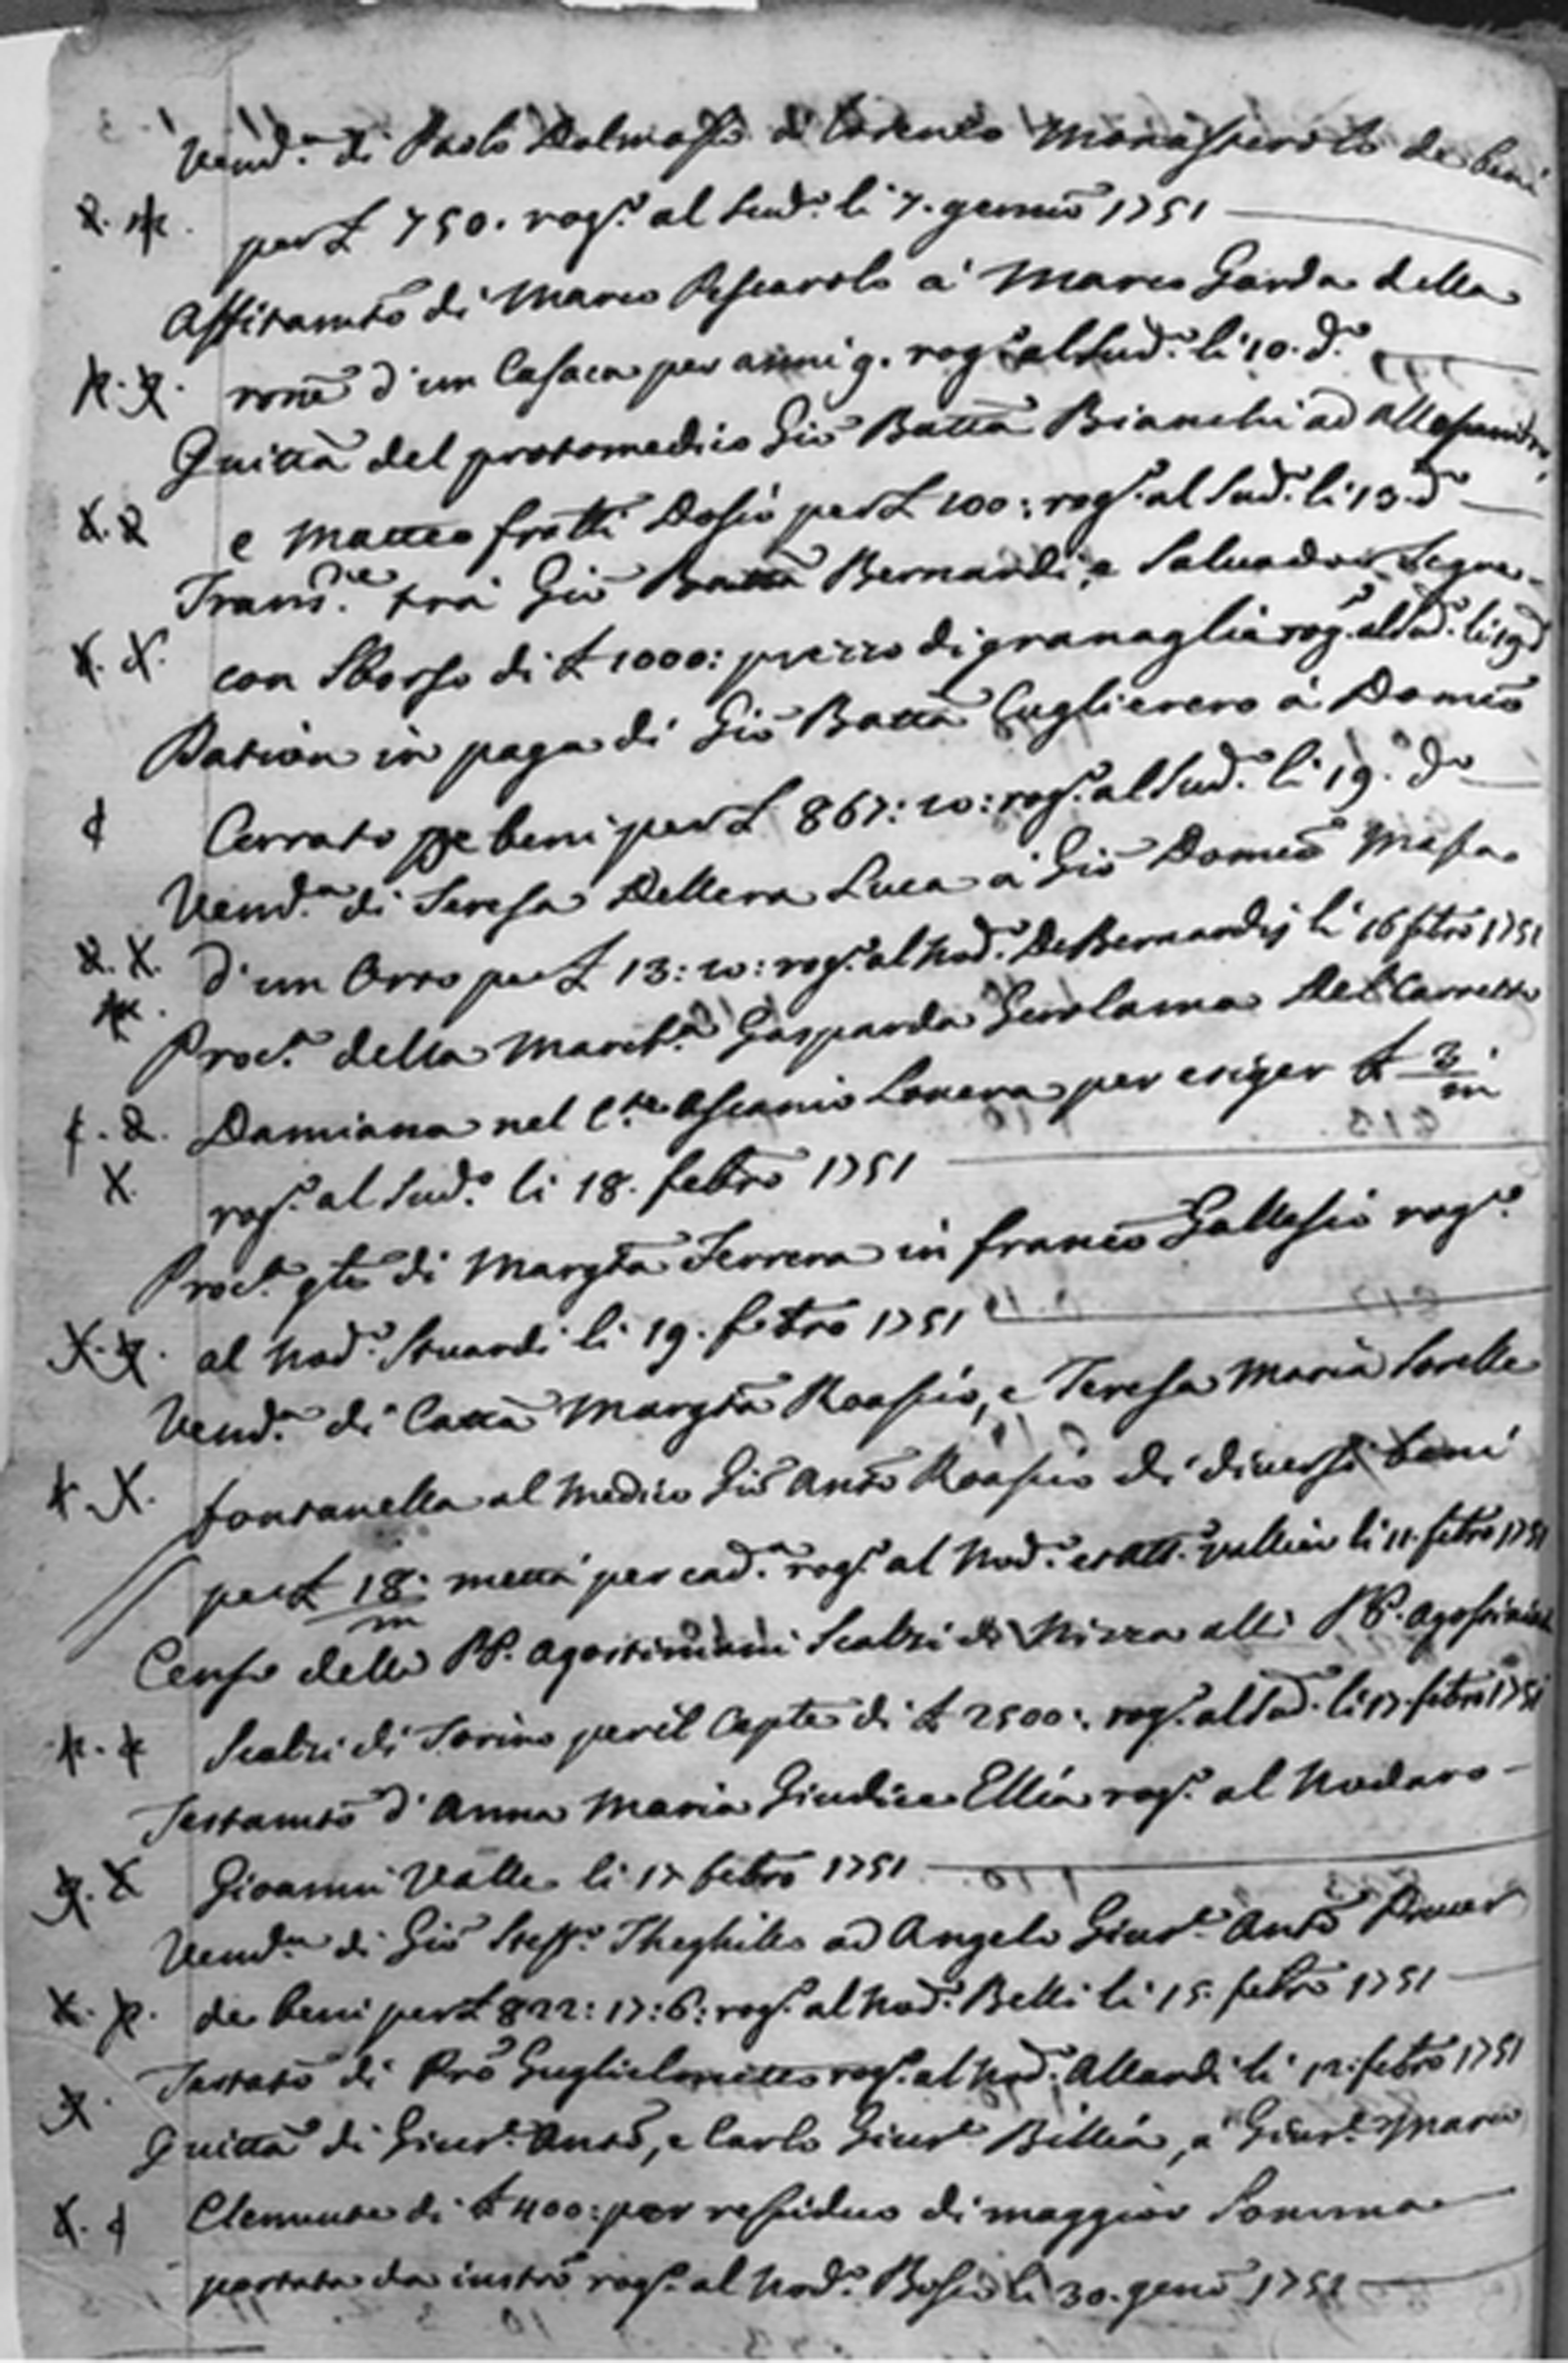 Vend.ª di Paolo Dalmasso à Lorenzo Monasterolo de beni
per £ 750. rog.º al Sud.º li 7. genno 1751
Affitamto di Marco Pescarolo à Marco Garda della
rone d'un Casaca per anni 9. rog.º al Sud.º li 10. d.º
Quitta del protomedico Gio Batta Bianchi ad Allessandro,
e Matteo fratti Dosio per £ 100: rog.º al Sud.º li 13. d.º
Trans.ne trà Gio Batta Bernardi, e Salvador Segre
con Sborso di £ 1000: prezzo di granaglie rog.º al Sud.º li 19 d.º
Dation in paga di Gio Batta Cuglierero à Domco
Cerrato de beni per £ 867: 10: rog.º al Sud.º li 19. d.º
Vend.ª di Teresa Dellera Luca à Gio Domco Massa
d'un Orto per £ 13: 10: rog.º al Nod.º DeBernardis li 16 febro 1751
Proc.ª della March.ª Gasparda Gerolama Del Carretto
Damiana nel C.te Ascanio Lovera per esiger £ 3/m
rog.º al Sud.º li 18. febro 1751
Proc.ª gle di Margta Ferrera in franco Gallesio rog.º
al Nod.º Stuardi li 19. febro 1751
Vend.ª di Catta Margta Roascio, e Teresa Maria Sorelle
fontanella al Medico Gio Anto Roascio di diversi beni
per £ 18/m metta per cad.ª rog.º al Nod.º li 11. febro 1751
Censo delli PP. Agostiniani Scalzi di Nizza alli PP. Agostiniani
Scalzi di Torino per il Caple di £ 2500: rog.º al Sud.º li 17. febro 1751
Testamto d'Anna Maria Giudice Ellia rog.º al Nodaro
Gioanni Valle li 17 febro 1751
Vend.ª di Gio Steff.º Theghillo ad Angelo Gius.e Anto
de beni per £ 822: 17: 6: rog.º al Nod.º Belli li 15. febro 1751
Testato di Pro Guglielmetto rog.º al Nod.º Allardi li 12. febro 1751
Quitta di Gius.e Anto, e Carlo Gius.e Billia, à Gius.e Maria
Clemente di £ 400: per residuo di maggior Somma
portata da instro rog.º al Nod.º Bosio li 30. geno 1751